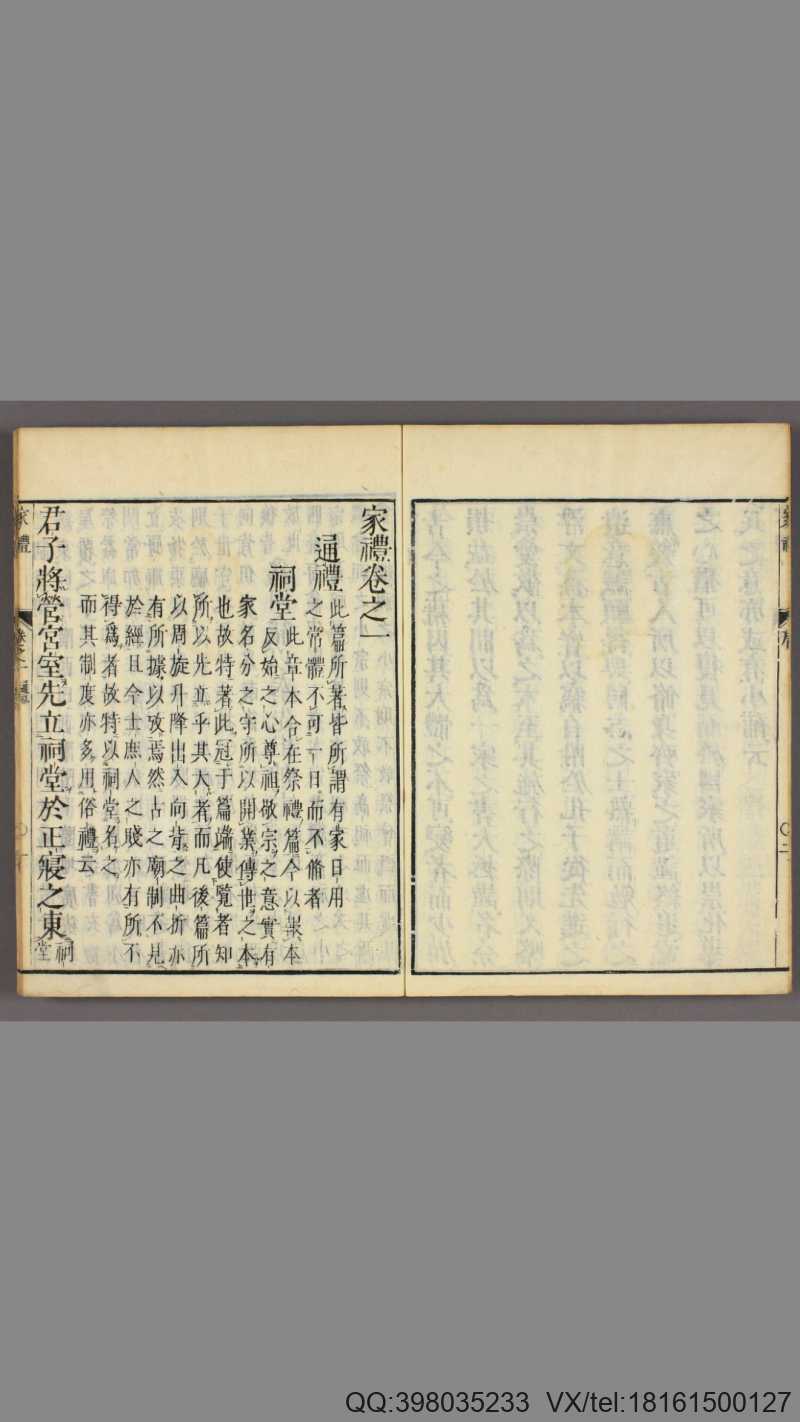 家禮卷之一
通禮此篇所著皆所謂有家日用
之常體不可一日而不脩者
祠堂此章本合在祭禮篇今以報本
反始之心尊祖敬宗之意實有
家名分之守所以開業傳世之本
也故特著此冠于篇端使覽者知
所以先立乎其大者而凡後篇所
以周旋升降出入向背之曲折亦
有所據以攷焉然古之廟制不見
於經且今士庶人之賤亦有所不
得爲者故特以祠堂名之
而其制度亦多用俗禮云
君子將營宮室先立祠堂於正寢之東祠
堂
家禮
QQ:398035233 VX/tel:18161500127